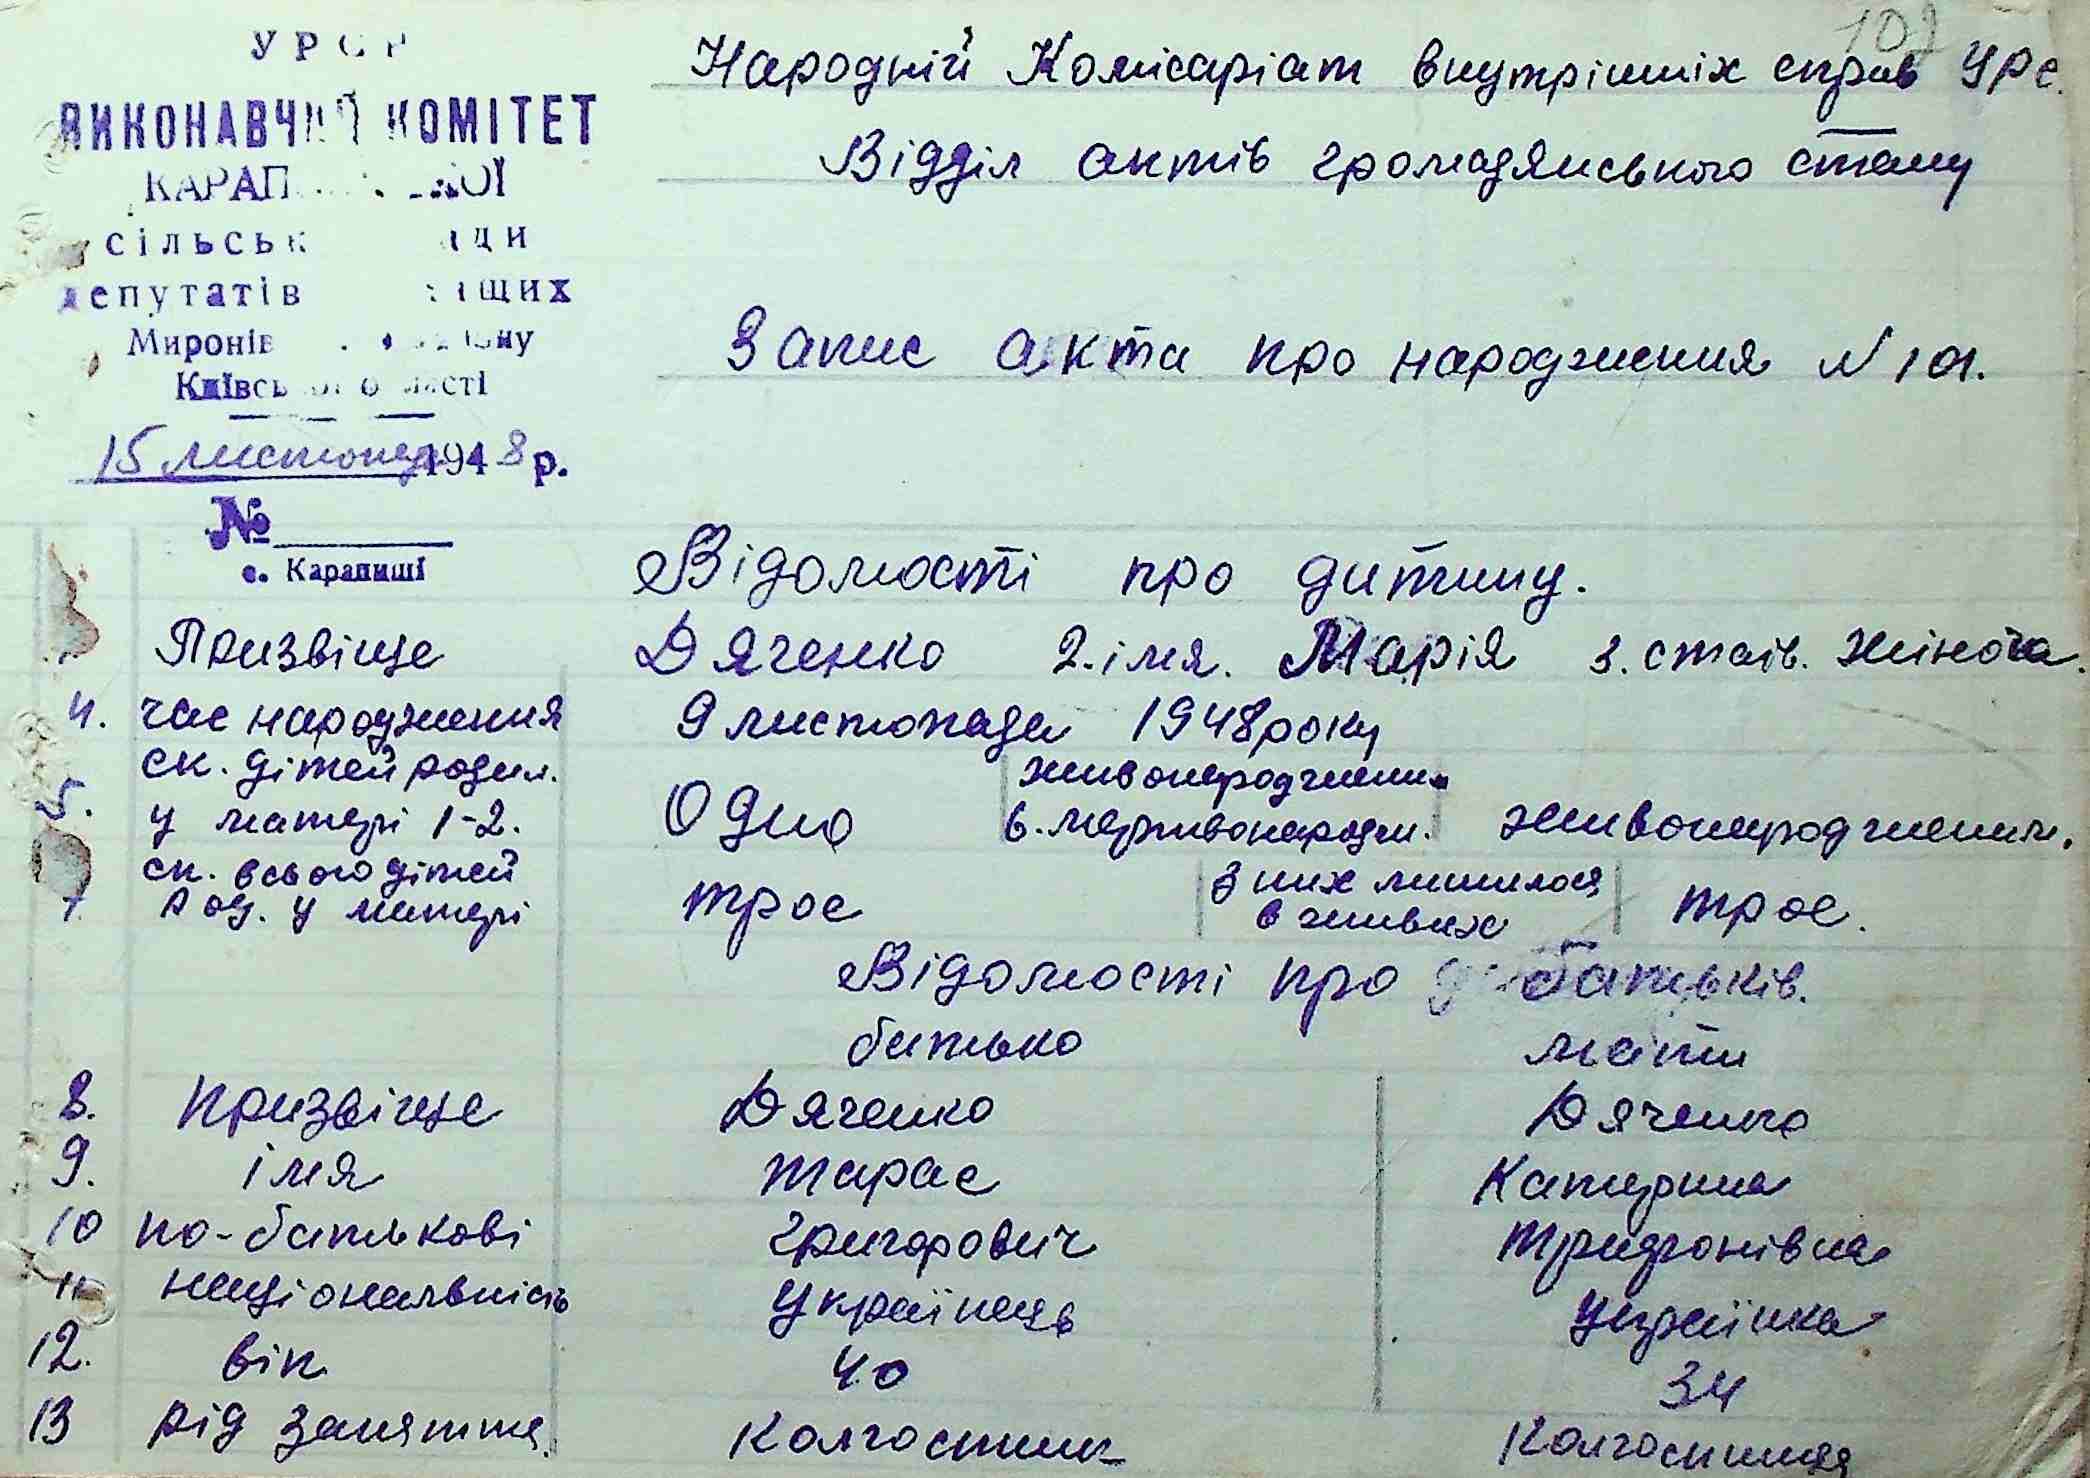 102
УРСР
ВИКОНАВЧИЙ КОМІТЕТ
КАРАП
сільськ ади
депутатів ящих
Миронів ону
Київсь о асті
15 листопад 1948 р.
№
с. Карапиші
Народній Комісаріат внутрішніх справ УРС.
Відділ актів громадянського стану
Запис акта про народження N 101.
Відомості про дитину.
Призвіще Дяченко 2. імя. Марія 3. стать. жіноча.
4. час народження 9 листопада 1948 року
5. ск. дітей родил. у матері 1-2. Одно живонароджени 6. мертвонародж. живонароджении.
7 ск. всього дітей род. у матері троє з них лишилося в живих троє.
Відомості про батьків.
батько мати
8. призвіще Дяченко Дяченко
9. імя Тарас Катерина
10 по-батькові Григорович Трифонівна
11 національність Українець Українка
12. вік 40 34
13 рід заняття. Колгоспник Колгоспниця